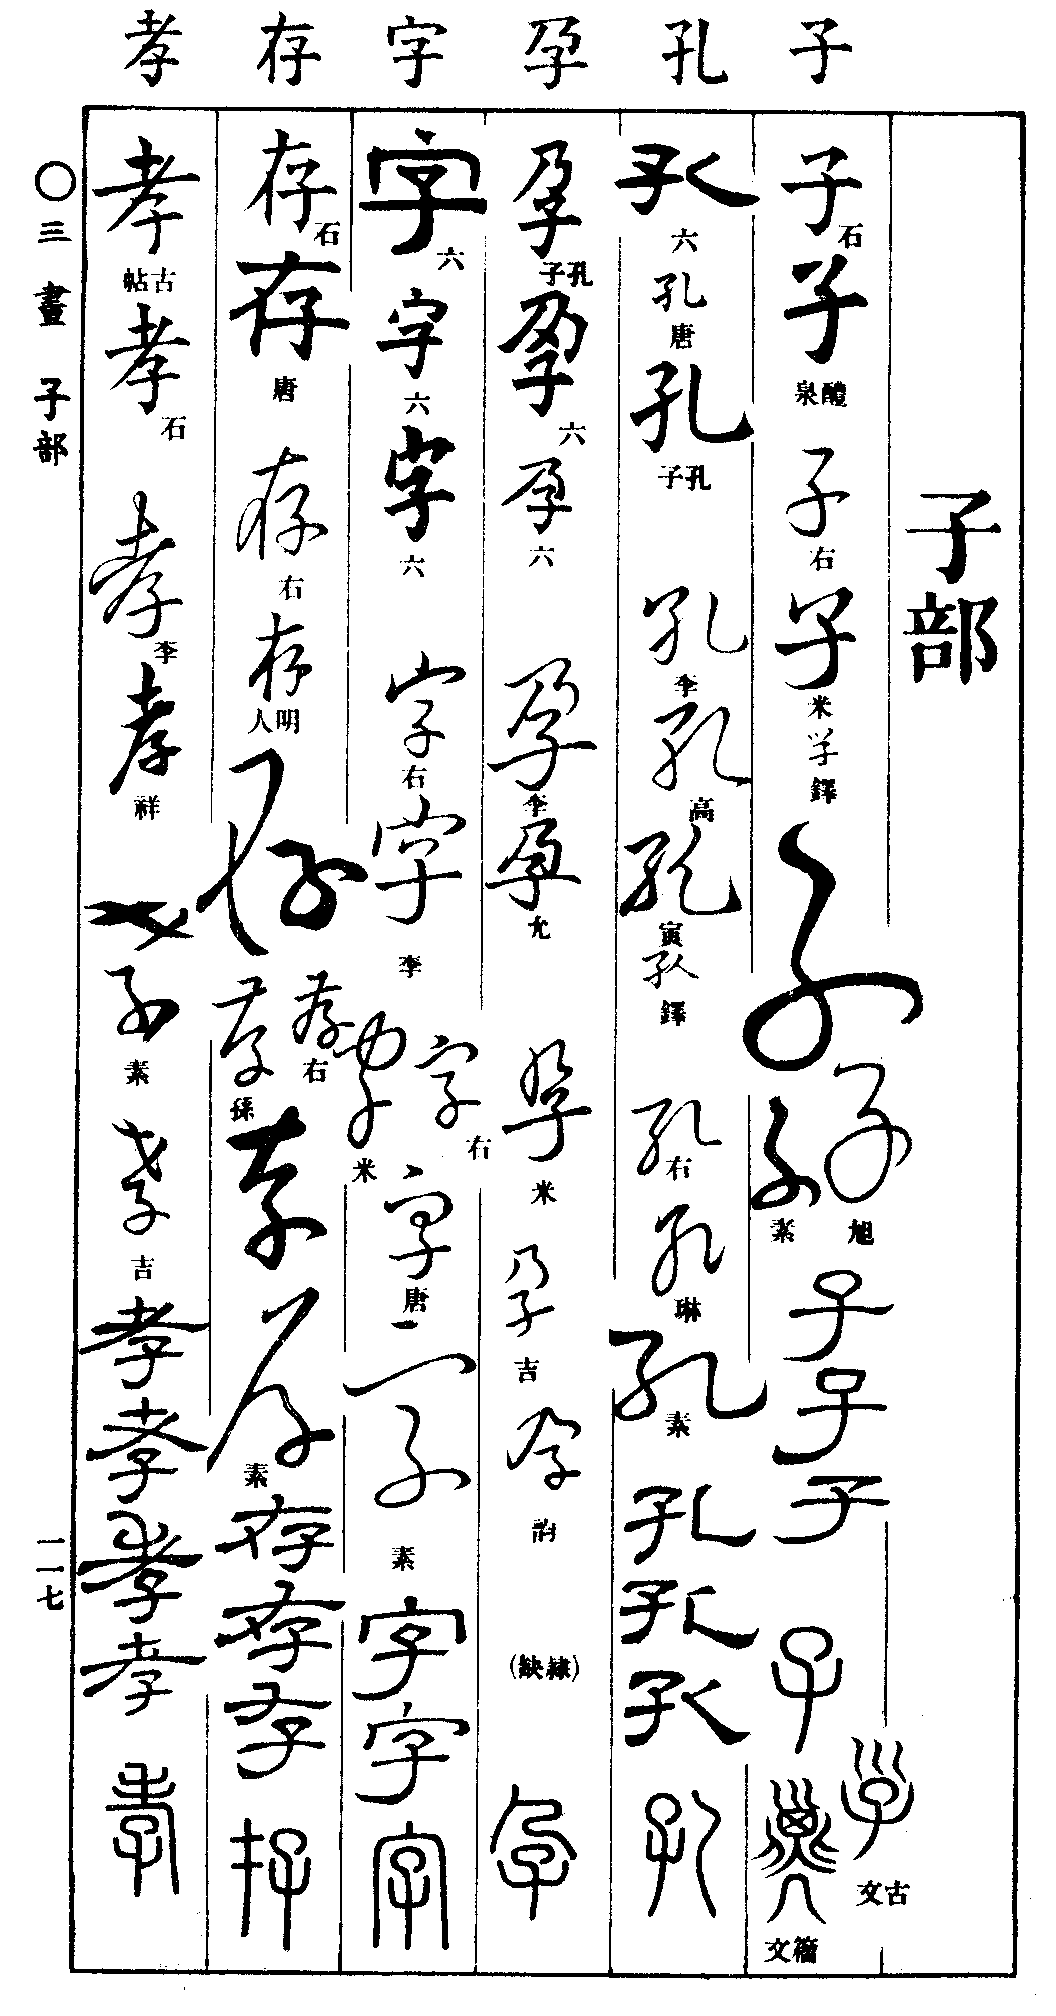 子 孔 孕 字 存 孝
子部
子 石
子 醴泉
子 右
子 米
子 鐸
子
子 旭
子 素
子
子
子
子
子 古文
籀文
孔 六
孔 唐
孔 孔子
孔 李
孔 高
孔 寅
孔 鐸
孔 右
孔 琳
孔 素
孔
孔
孔
孔
孕 孔子
孕 六
孕 六
孕 李
孕 允
孕 米
孕 吉
孕
(隸缺)
孕
字 六
字 六
字 六
字 右
字 李
字 右
字 米
字 唐
字 素
字
字
字
存 石
存 唐
存 右
存 明人
存
存 右
存 孫
存
存 素
存
存
存
存
孝 古帖
孝 石
孝 李
孝 祥
孝 素
孝 吉
孝
孝
孝
孝
孝
〇三畫 子部
一一七